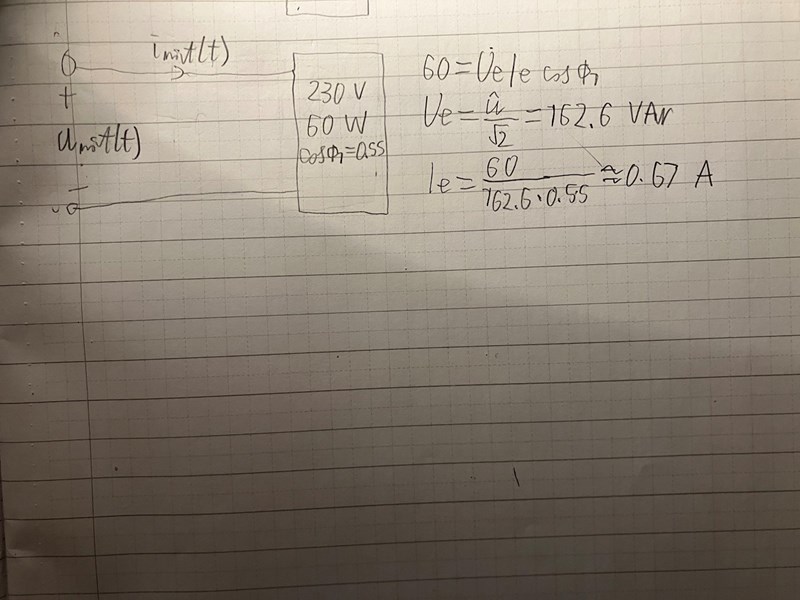 i_nät(t)
+
U_nät(t)
-
230 V
60 W
cosφ₁=0.55
60=Ue Ie cosφ₁
Ue=û/√2=162.6 VAr
Ie=60/162.6·0.55≈0.67 A